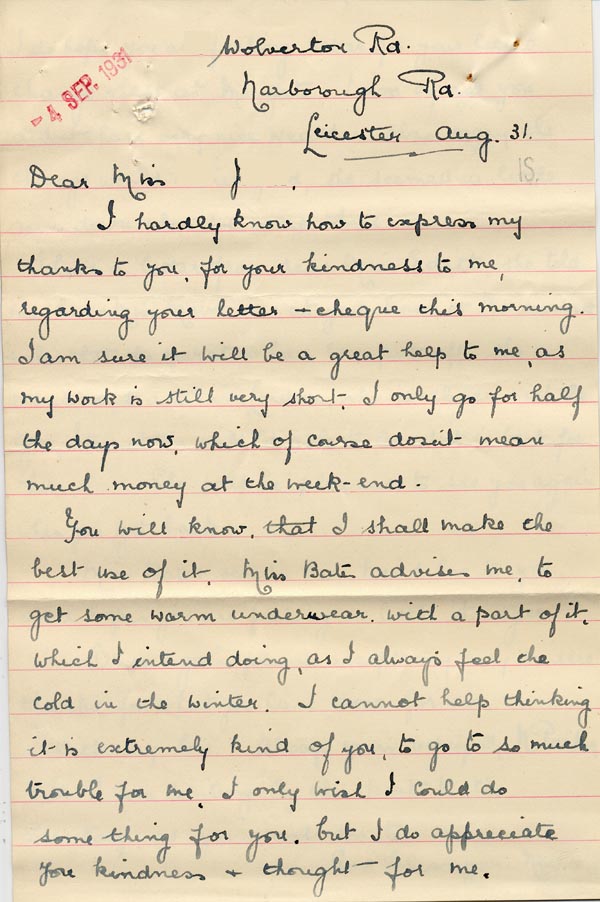 Wolverton Rd.
- 4 SEP. 1931
Narborough Rd.
Leicester Aug. 31.
IS.
Dear Miss J .
I hardly know how to express my
thanks to you, for your kindness to me,
regarding your letter + cheque this morning.
I am sure it will be a great help to me, as
my work is still very short. I only go for half
the days now, which of course dosen't mean
much money at the week-end.
You will know, that I shall make the
best use of it. Miss Bate advises me, to
get some warm underwear, with a part of it,
which I intend doing, as I always feel the
cold in the winter. I cannot help thinking
it is extremely kind of you, to go to so much
trouble for me. I only wish I could do
some thing for you, but I do appreciate
you kindness + thought for me.